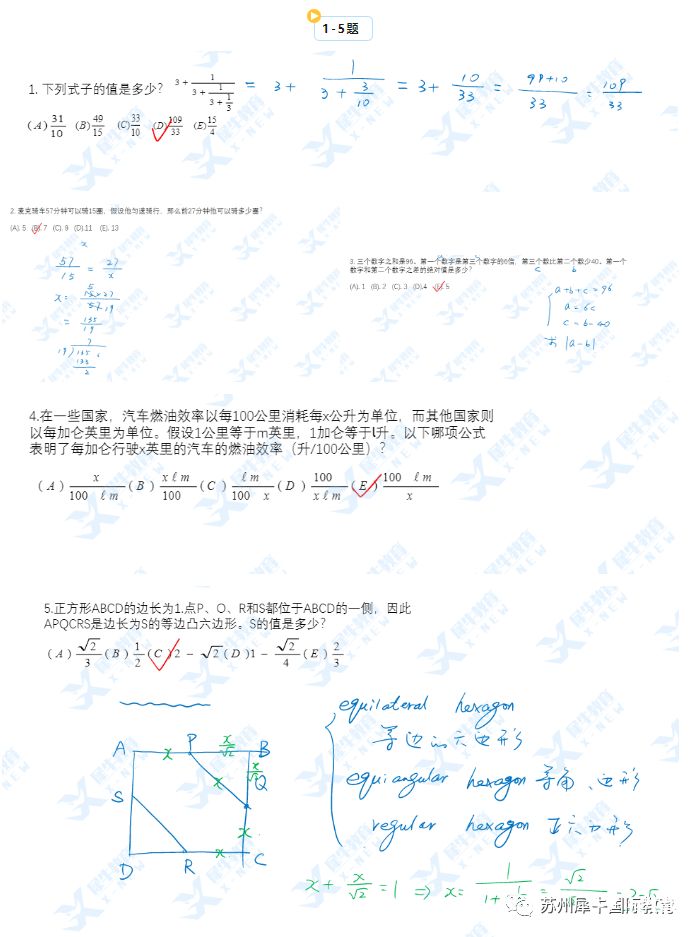 1-5题
1. 下列式子的值是多少? 3 + 1/(3 + 1/(3 + 1/3)) = 3 + 1/(3 + 3/10) = 3 + 10/33 = (99+10)/33 = 109/33
(A) 31/10 (B) 49/15 (C) 33/10 (D) 109/33 (E) 15/4
2. 麦克骑车57分钟可以骑15塁，假设他匀速骑行，那么前27分钟他可以骑多少塁?
(A). 5 (B). 7 (C). 9 (D).11 (E). 13
x
57/15 = 27/x
x = 15×27/57
5
19
= 135/19
7
19 135
133
2
3. 三个数字之和是96。第一个数字是第三个数字的6倍，第三个数比第二个数少40。第一个
数字和第二个数字之差的绝对值是多少?
c b
(A). 1 (B). 2 (C). 3 (D).4 (E). 5
a+b+c=96
a=6c
c=b-40
求 |a-b|
4.在一些国家，汽车燃油效率以每100公里消耗每x公升为单位，而其他国家则
以每加仑英里为单位。假设1公里等于m英里，1加仑等于l升。以下哪项公式
表明了每加仑行驶x英里的汽车的燃油效率（升/100公里）?
(A) x/(100 ℓ m) (B) x ℓ m/100 (C) ℓ m/(100 x) (D) 100/(x ℓ m) (E) 100 ℓ m/x
5.正方形ABCD的边长为1.点P、O、R和S都位于ABCD的一侧，因此
APQCRS是边长为S的等边凸六边形。S的值是多少?
(A) √2/3 (B) 1/2 (C) 2 - √2 (D) 1 - √2/4 (E) 2/3
equilateral hexagon
等边的六边形
equiangular hexagon 等角六边形
regular hexagon 正六边形
A P B
x x/√2
x/√2
S Q
x
x
D R x C
x + x/√2 = 1 ⇒ x =
苏州犀牛国际教育
犀牛教育
X-NEW